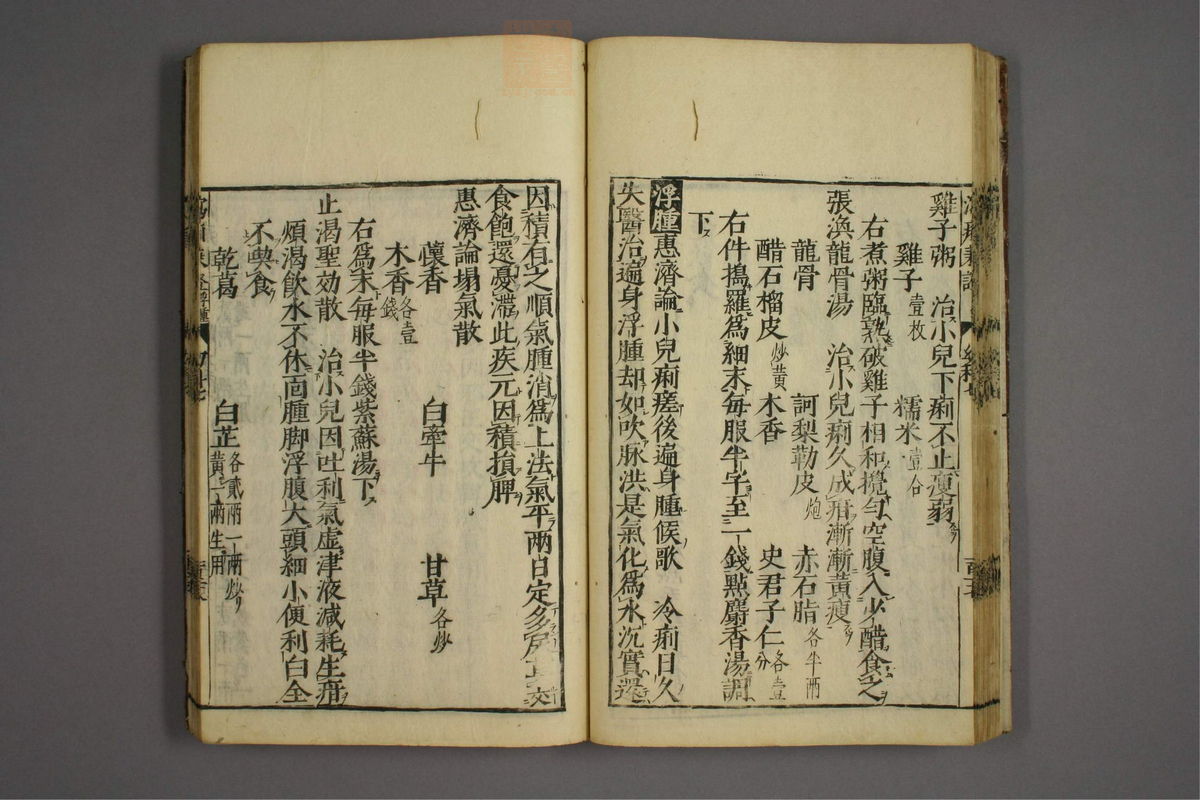 雞子粥　治小兒下痢不止瘦弱
雞子壹枚　糯米壹合
右煮粥臨熟破雞子相和攪勻空腹入少醋食之
張渙龍骨湯　治小兒痢久成疳漸漸黃瘦
龍骨　訶梨勒皮炮　赤石脂各半兩
醋石榴皮炒黃　木香　史君子仁各壹分
右件搗羅爲細末每服半字至一錢點麝香湯調
下
浮腫惠濟論小兒痢瘥後遍身腫候歌　冷痢日久
失醫治遍身浮腫却如吹脉洪是氣化爲水沉實還
因積有之順氣腫消爲上法氣平兩日定多
食飽還憂滯此疾元因積損脾
惠濟論塌氣散
蘹香　白牽牛　甘草各炒
木香各壹錢
右爲末每服半錢紫蘇湯下
止渴聖効散　治小兒因吐利氣虛津液減耗生疳
煩渴飲水不休面腫脚浮腹大頭細小便利白全
不喫食
乾葛　白芷各貳兩一兩炒黃一兩生用